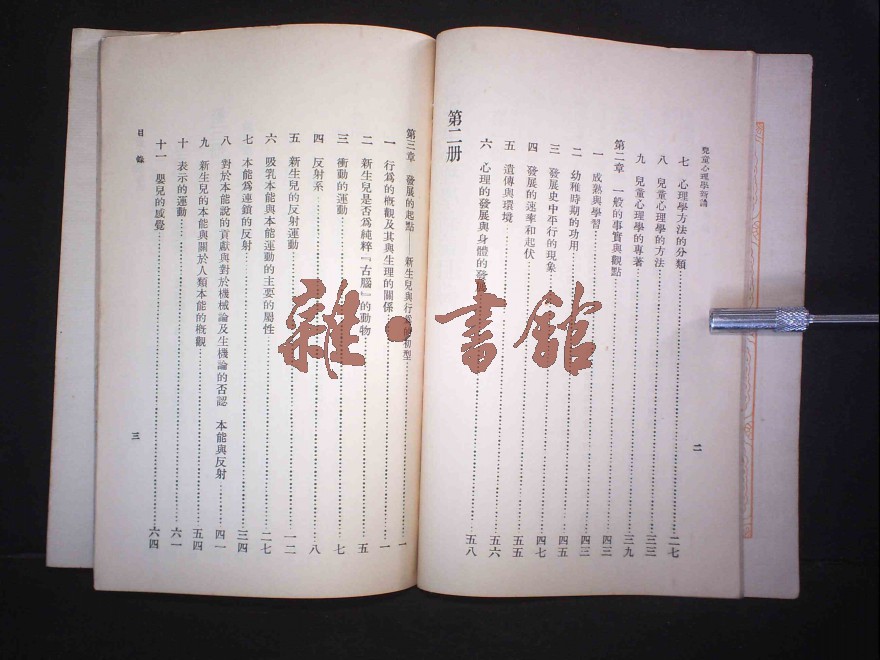 兒童心理學新論
七 心理學方法的分類 二七
八 兒童心理學的方法 三三
九 兒童心理學的專著 三九
第二章 一般的事實與觀點 四三
一 成熟與學習 四三
二 幼稚時期的功用 四五
三 發展史中平行的現象 四七
四 發展的速率和起伏 五五
五 遺傳與環境 五六
六 心理的發展與身體的發 五八
二
第二册
第三章 發展的起點——新生兒與行爲 初型 一
一 行爲的概觀及其與生理的關係 一
二 新生兒是否爲純粹『古腦』的動物 五
三 衝動的運動 七
四 反射系 八
五 新生兒的反射運動 一二
六 吸乳本能與本能運動的主要的屬性 二七
七 本能爲連鎖的反射 三四
八 對於本能說的貢獻與對於機械論及生機論的否認 本能與反射 四一
九 新生兒的本能與關於人類本能的概觀 五四
十 表示的運動 六一
十一 嬰兒的感覺 六四
目錄
三
雜·書館